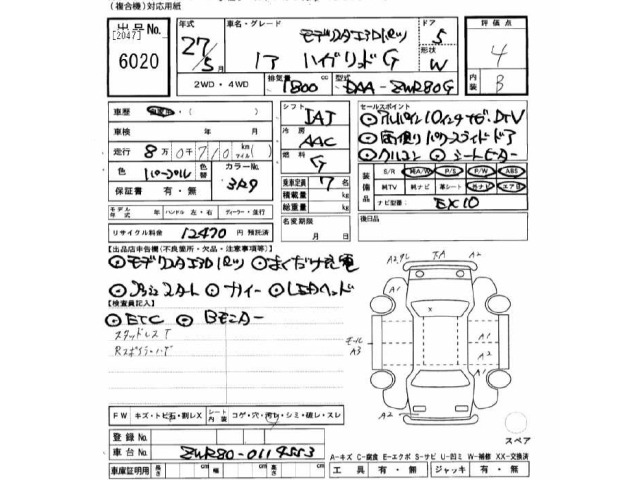 (複合機)対応用紙
出品No. [2047] 6020
年式 27/5月
車名・グレード モデリスタエアロパーツ
ノア ハイブリッドG
ドア 5
形状 W
評価点 4
内装 B
2WD・4WD
排気量 1800 cc
型式 DAA-ZWR80G
車歴 自家用・( )
車検 年 月
走行 8万0千710km(マイル)( )
色 パープル 色替 カラーNo. 3R9
保証書 有・無
シフト IAT
冷房 AAC
燃料 G
乗車定員 7名
積載量 kg
総重量 kg
セールスポイント
⊙アルパイン10インチナビ・DTV
⊙両側パワースライドドア
⊙クルコン ⊙シートヒーター
装備品 S/R 純A/W P/S P/W ABS
純TV 純ナビ 革シート 社ナビ エアB
ナビ型番 EX10
モデル年式 年 ハンドル 左・右 ディーラー・並行
リサイクル料金 12470 円 預託済
名変期限 月 日
後日品
【出品店申告欄(不良箇所・欠品・注意事項等)】
⊙モデリスタエアロパーツ ⊙おくだけ充電
⊙プッシュスタート ⊙スマートキー ⊙LEDヘッド
【検査員記入】
⊙ETC ⊙Bモニター
スタッドレスT
Rスポイラ・ハゲ
A2,9L ヌA A2
A1 A1
モール A3
X
A1
A2
A1
A2
スペア
FW キズ・トビ石・刺レX シート内装 コゲ・穴・汚レ・シミ・破レ・スレ
登録No.
車台No. ZWR80-0119553
車庫証明用 長さ cm 幅 cm 高さ cm
A-キズ C-腐食 E-エクボ S-サビ U-凹ミ W-補修 XX-交換済
工具 有・無 ジャッキ 有・無